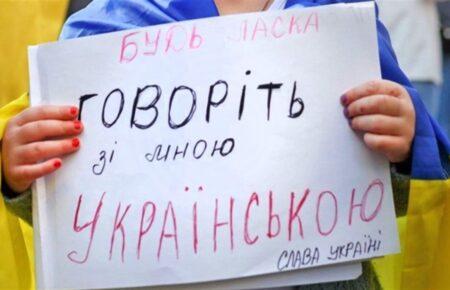 БУДЬ ЛАСКА
ГОВОРІТЬ
зі мною
УКРАЇНСЬКОЮ
СЛАВА УКРАЇНІ